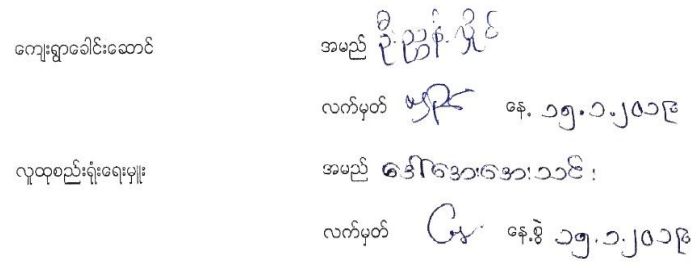 ကျေးရွာခေါင်းဆောင် အမည် ဦးညွှန့်လှိုင်
လက်မှတ် နေ့. ၁၅.၁.၂၀၁၉
လူထုစည်းရုံးရေးမှူး အမည် ဒေါ်အေးအေးသင်း
လက်မှတ် နေ့.စွဲ ၁၅.၁.၂၀၁၉